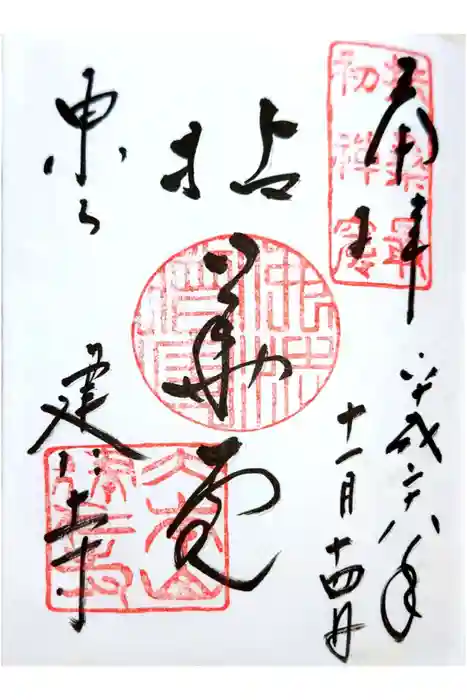 奉拝
扶桑最
初禅窟
平成二十八年
十一月十四日
拈華堂
東山
建仁寺